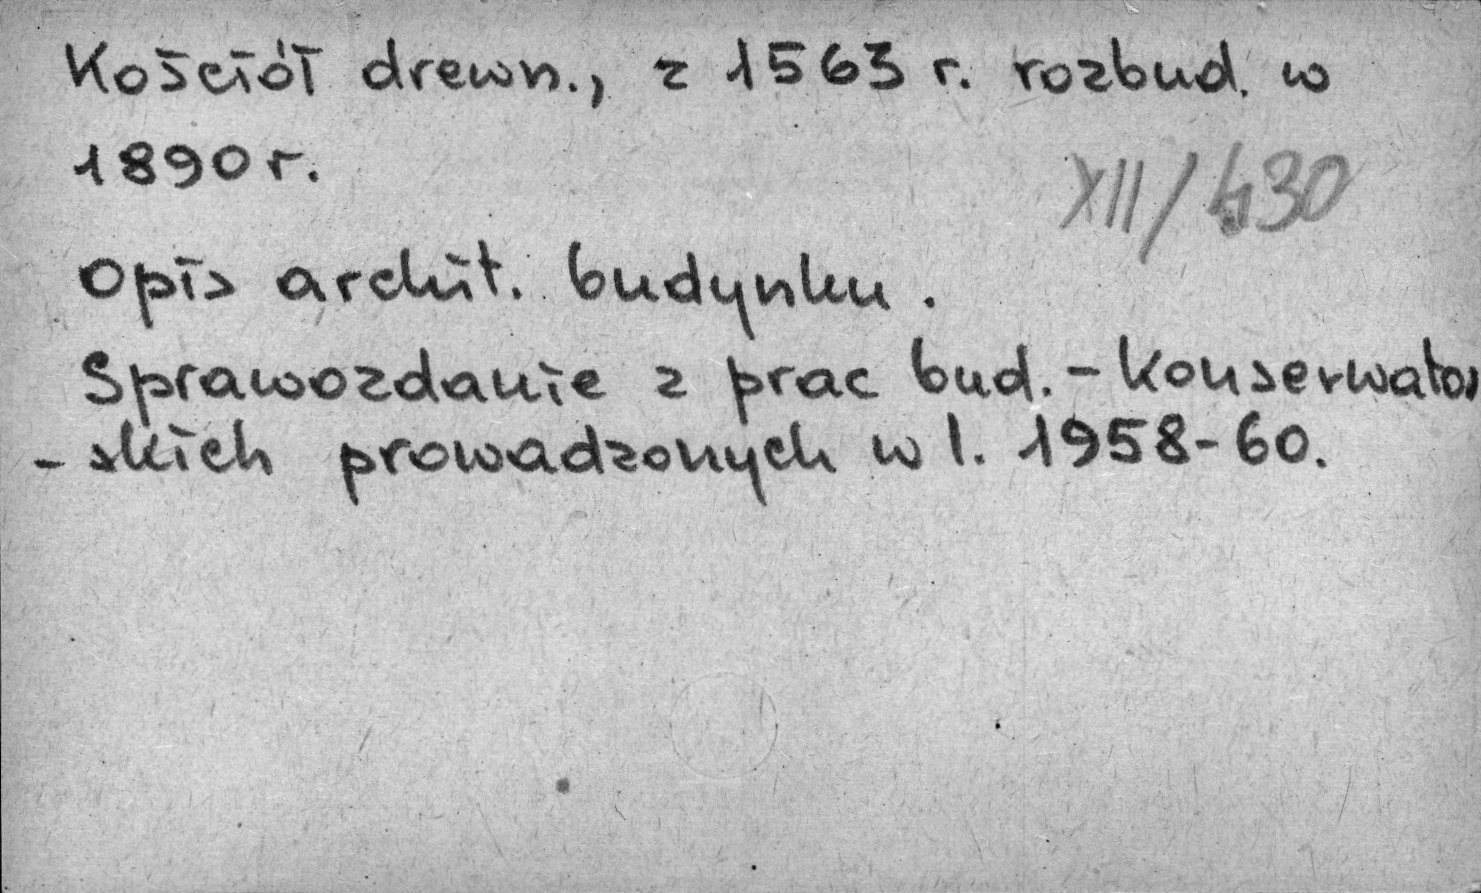 Kościół drewn., z 1563 r. rozbud. w
1890 r.
XII/430
Opis archit. budynku.
Sprawozdanie z prac bud. - konserwator
- skich prowadzonych w l. 1958-60.